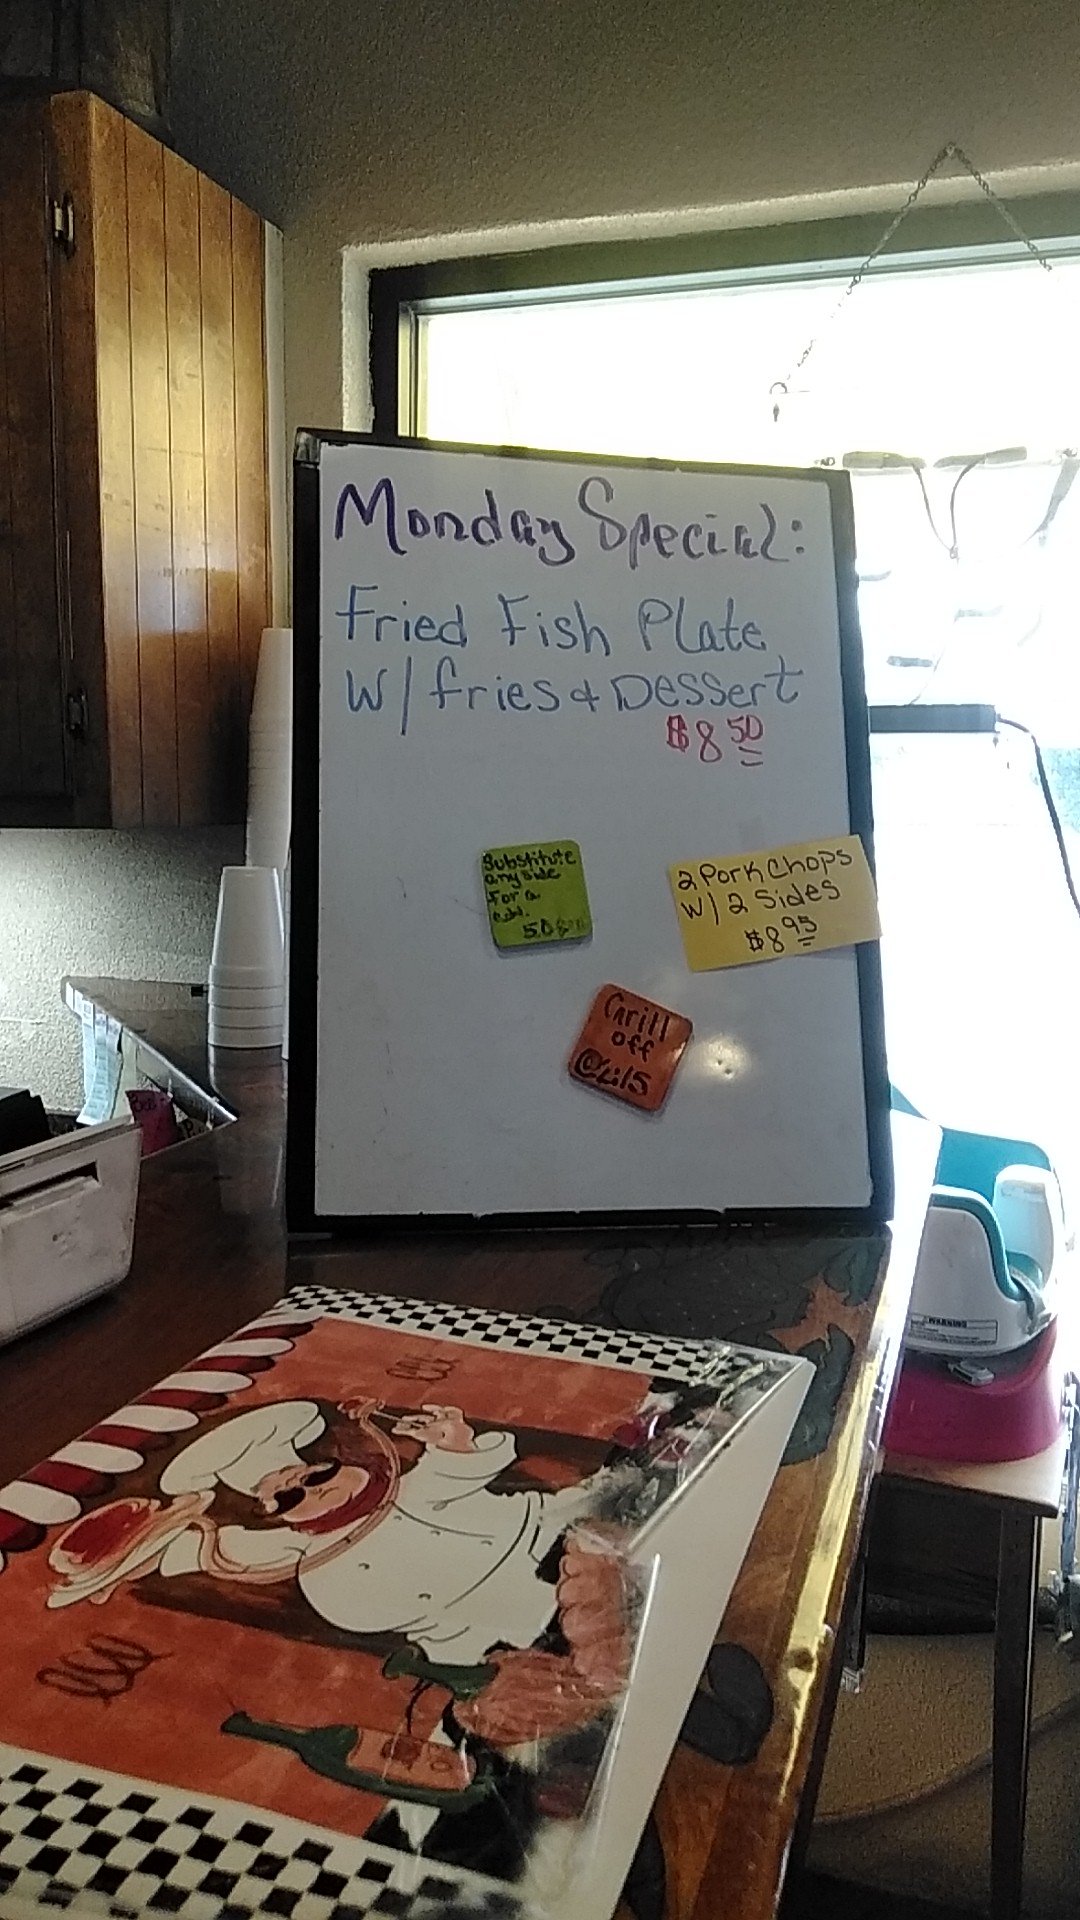 Monday Special:
Fried Fish Plate
W/fries & Dessert
$8 50
Substitute
any side
for a
50¢
2 Pork Chops
W/ 2 Sides
$8 95
Grill
off
@2:15
WARNING